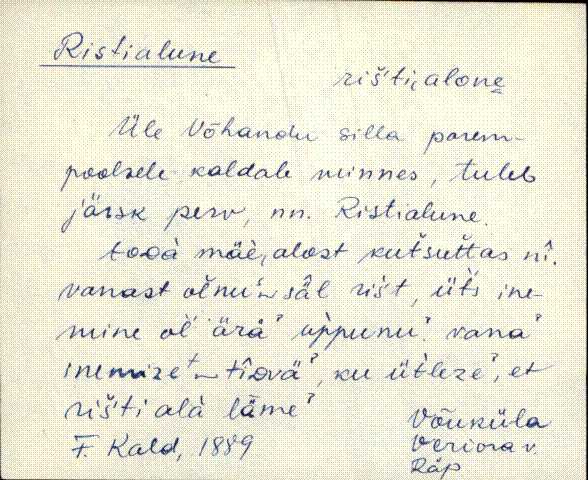 Ristialune
rišti̮alone
Üle Võhandu silla parem-
poolsele kaldale minnes, tuleb
järsk perv, nn. Ristialune.
tooà mäè̬alost kutšuttas nî.
vanast olnuˀ säl rišt, ütš ine-
mine ol äräˀ uppunuˀ. vanaˀ
inemizeˀ tîdväˀ, ku ütlezeˀ, et
rišti alà lämeˀ
F. Kald, 1889
Võuküla
Veriora v.
Räp